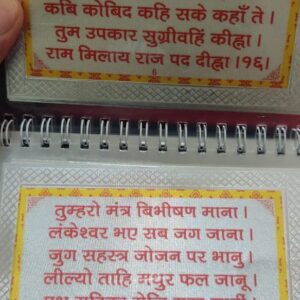 कबि कोबिद कहि सके कहाँ ते ।
तुम उपकार सुग्रीवहिं कीह्ना ।
राम मिलाय राज पद दीह्ना ।१६।
6
तुम्हरो मंत्र बिभीषण माना ।
लंकेश्वर भए सब जग जाना ।
जुग सहस्त्र जोजन पर भानु ।
लील्यो ताहि मधुर फल जानू ।